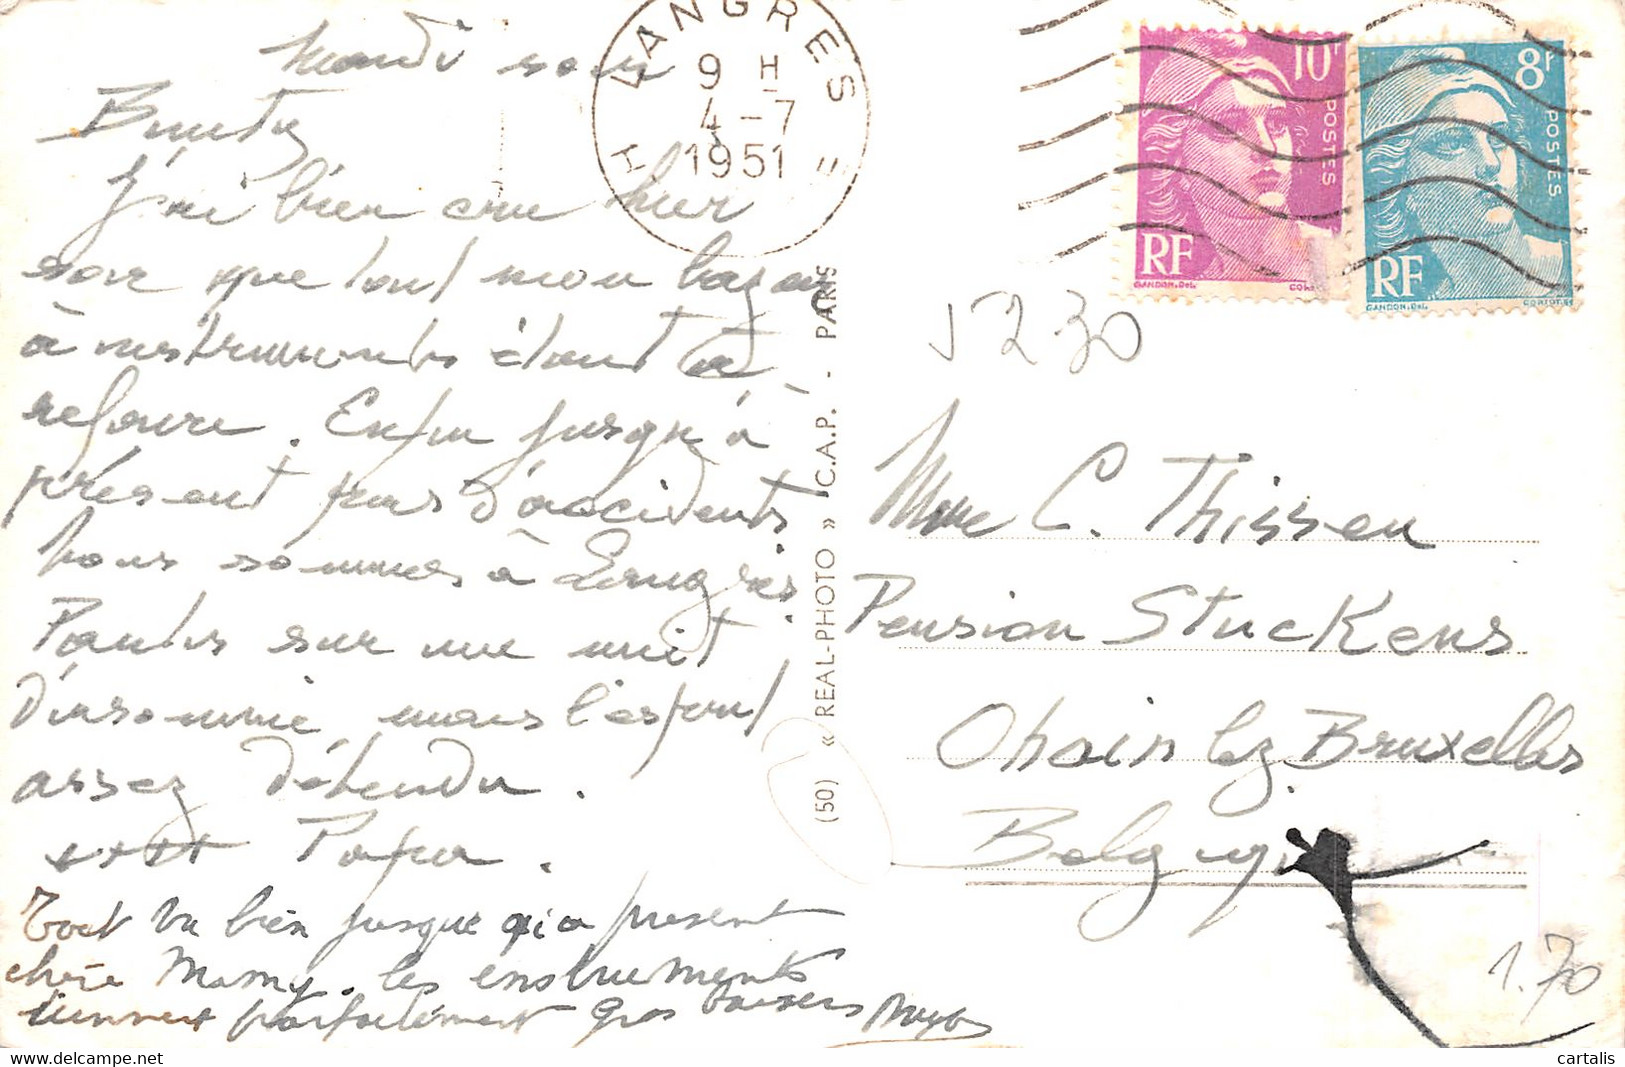 Mardi soir
J'ai bien cru hier
soir que tout mon bazar
à instruments était à
refaire. Enfin jusqu'à
présent pas d'accidents
Nous sommes à Langres.
Partis sur une nuit
d'insomnie mais l'esprit
assez détendu.
++++ Papa.
Tout va bien jusque qi a present
chère Mamy. les enstruments
tiennent parfaitement gros baisers
LANGRES
9 H
4-7
1951
H
(50) « REAL-PHOTO » C.A.P. - PARIS
10F
POSTES
RF
GANDON.DEL.
8F
POSTES
RF
GANDON.DEL.
5230
Mme C. Thissen
Pension Stuckens
Ohain lez Bruxelles
Belgique
1.70
www.delcampe.net
cartalis